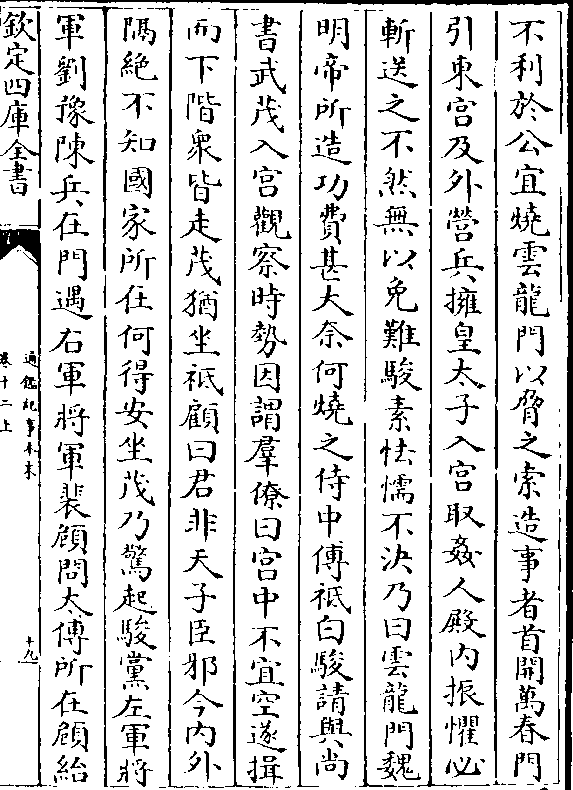 不利於公宜燒雲龍門以脅之索造事者首開萬春門
引東宮及外營兵擁皇太子入宮取姦人殿内振懼必
斬送之不然無以免難駿素怯懦不決乃曰雲龍門魏
明帝所造功費甚大奈何燒之侍中傅祗白駿請與尚
書武茂入宮觀察時勢因謂羣僚曰宮中不宜空遂揖
而下階衆皆走茂猶坐祗顧曰君非天子臣邪今内外
隔絶不知國家所在何得安坐茂乃驚起駿黨左軍將
軍劉豫陳兵在門遇右軍將軍裴頠問太傅所在頠紿
欽定四庫全書
通鑑紀事本末
卷十二上
十九